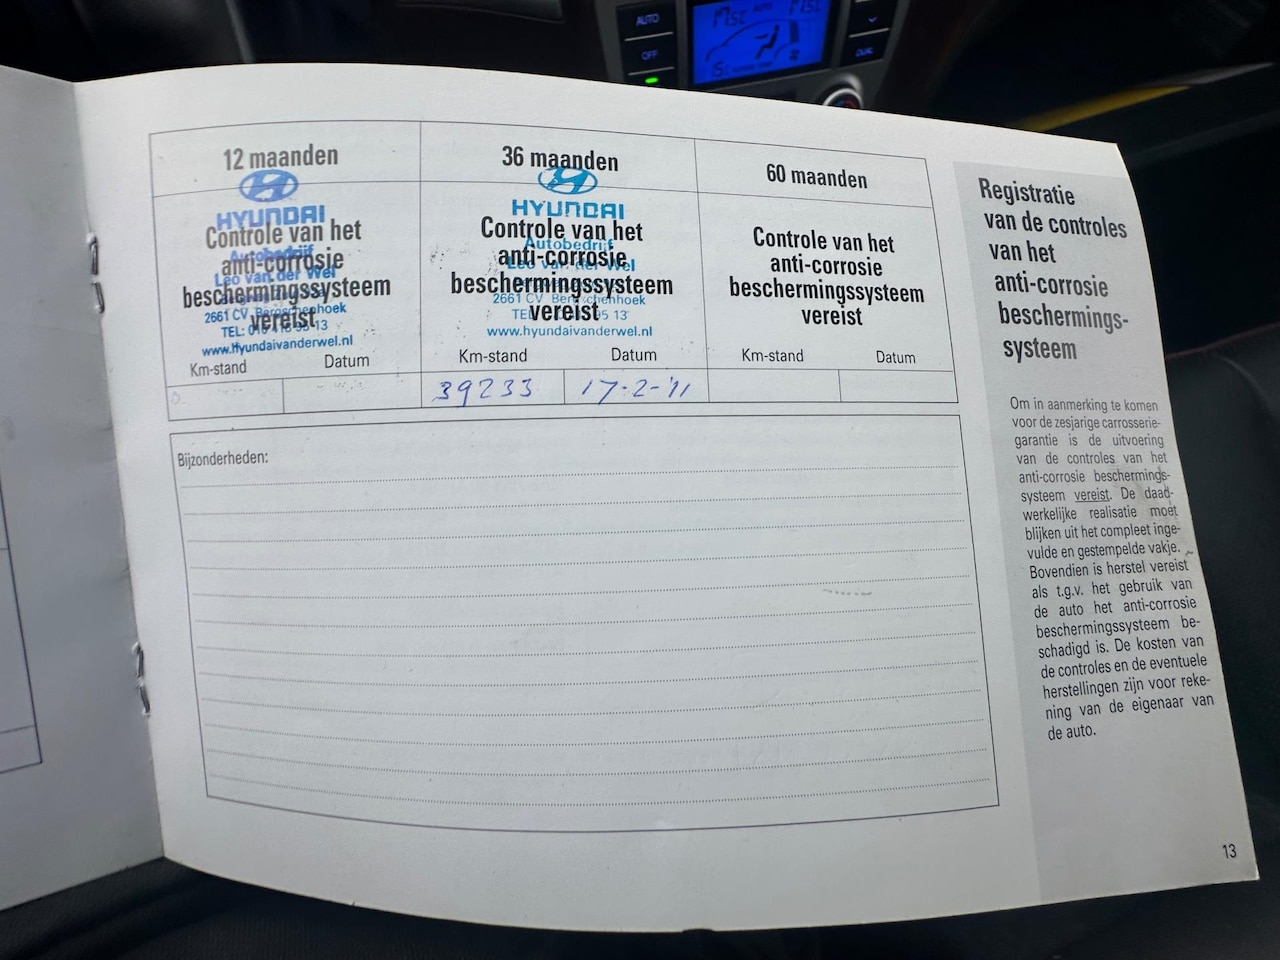 AUTO
OFF
DUAL
12 maanden
HYUNDAI
Controle van het
anti-corrosie
beschermingssysteem
vereist
Autobedrijf
Leo van der Wel
2661 CV Bergschenhoek
TEL:
www.hyundaivanderwel.nl
Km-stand
Datum
36 maanden
HYUNDAI
Controle van het
anti-corrosie
beschermingssysteem
vereist
Autobedrijf
Leo van der Wel
2661 CV Bergschenhoek
TEL 95 13
www.hyundaivanderwel.nl
Km-stand
Datum
39233
17-2-'11
60 maanden
Controle van het
anti-corrosie
beschermingssysteem
vereist
Km-stand
Datum
Bijzonderheden:
Registratie
van de controles
van het
anti-corrosie
beschermings-
systeem
Om in aanmerking te komen
voor de zesjarige carrosserie-
garantie is de uitvoering
van de controles van het
anti-corrosie beschermings-
systeem vereist. De daad-
werkelijke realisatie moet
blijken uit het compleet inge-
vulde en gestempelde vakje.
Bovendien is herstel vereist
als t.g.v. het gebruik van
de auto het anti-corrosie
beschermingssysteem be-
schadigd is. De kosten van
de controles en de eventuele
herstellingen zijn voor reke-
ning van de eigenaar van
de auto.
13